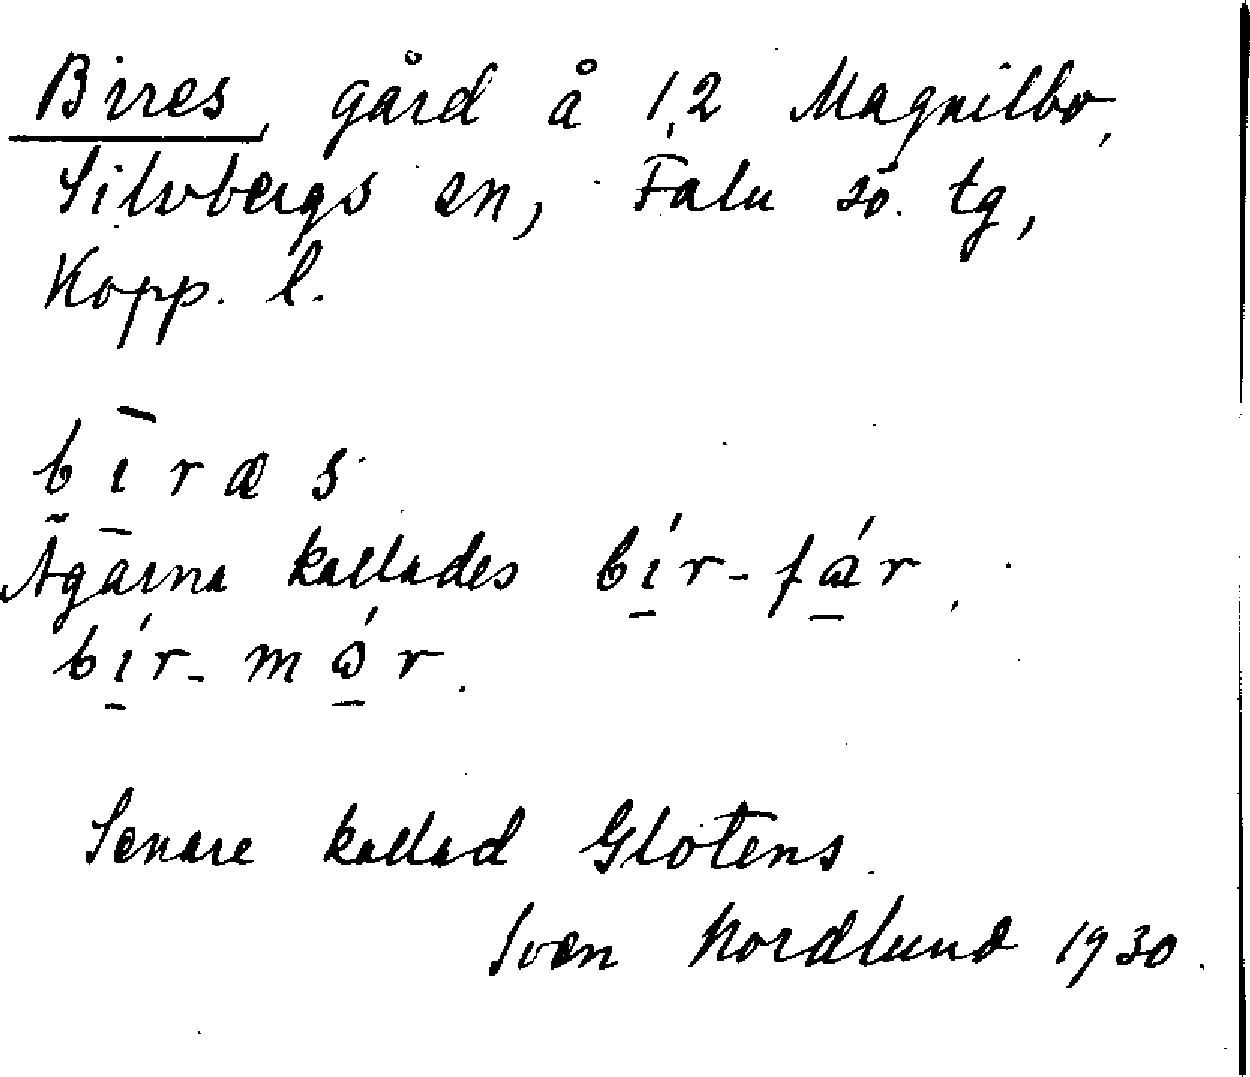 Birres, gård å 1,2 Magnilbo,
Silvbergs sn, Falu sö. tg,
Kopp. l.
bīræs
Ägarna kallades bír-fár,
bír-mór.
Senare kallad Glotens.
Sven Nordlund 1930.